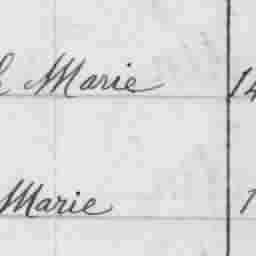 Marie 14
Marie 1